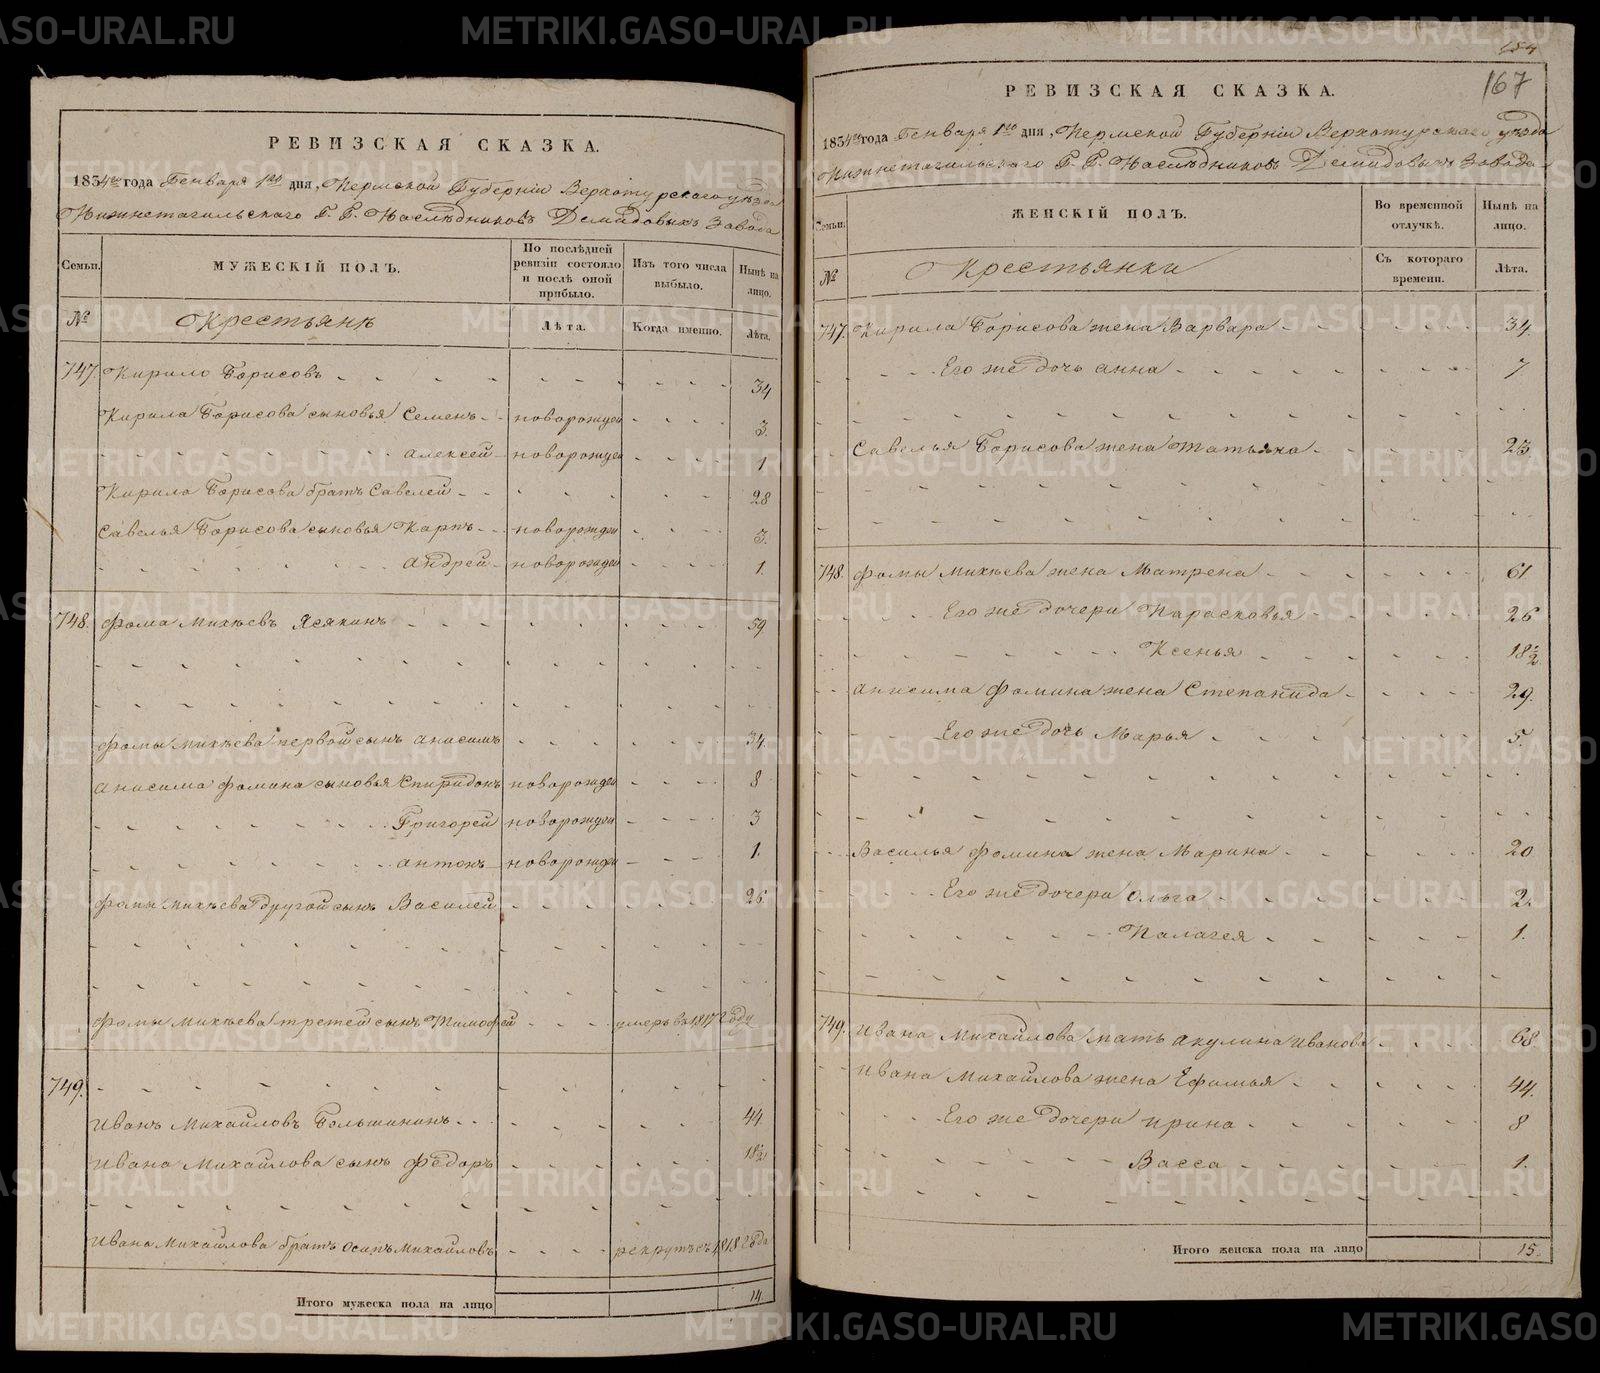 РЕВИЗСКАЯ СКАЗКА.
1834го года Генваря 1го дня, Пермской Губерніи Верхотурскаго уѣзда
Нижнетагильскаго Г. Г. Наслѣдниковъ Демидовыхъ Завода
Семьи.
МУЖЕСКІЙ ПОЛЪ.
По послѣдней ревизіи состояло и послѣ оной прибыло.
Изъ того числа выбыло.
Нынѣ на лицо.
№
Крестьянѣ
Лѣта.
Когда именно.
Лѣта.
747. Кирило Борисовъ 34
Кирила Борисова сыновья Семенъ новорожден 3.
Алексей новорожден 1
Кирила Борисова братъ Савелей 28
Савелья Борисова сыновья Карпъ новорожден 3.
Андрей новорожден 1.
748. Фома Михѣевъ Ясякинъ 59
Фомы Михѣева первой сынъ Анисимъ 34.
Анисима Фомина сыновья Спиридонъ новорожден 8
Григорей новорожден 3
Антонъ новорожден 1.
Фомы Михѣева другой сынъ Василей 26.
Фомы Михѣева третей сынъ Тимофей умеръ въ 1817 году
749.
Иванъ Михайловъ Большининъ 44
Ивана Михайлова сынъ Федоръ 18½
Ивана Михайлова братъ Осипъ Михайловъ рекрутъ съ 1818 года
Итого мужеска пола на лицо 14
184
167
РЕВИЗСКАЯ СКАЗКА.
1834го года Генваря 1го дня, Пермской Губерніи Верхотурскаго уѣзда
Нижнетагильскаго Г. Г. Наслѣдниковъ Демидовыхъ Завода
Семьи.
ЖЕНСКІЙ ПОЛЪ.
Во временной отлучкѣ.
Нынѣ на лицо.
№
Крестьянки
Съ котораго времени.
Лѣта.
747. Кирила Борисова жена Варвара 34.
Его же дочь Анна 7
Савелья Борисова жена Татьяна 23.
748. Фомы Михѣева жена Матрена 61.
Его же дочери Парасковья 26
Ксенья 18½
Анисима Фомина жена Степанида 29.
Его же дочь Марья 5.
Василья Фомина жена Марина 20
Его же дочери Ольга 2.
Палагея 1.
749. Ивана Михайлова мать Акулина Иванова 68
Ивана Михайлова жена Ефимья 44.
Его же дочери Ирина 8
Васса 1.
Итого женска пола на лицо 15.
METRIKI.GASO-URAL.RU